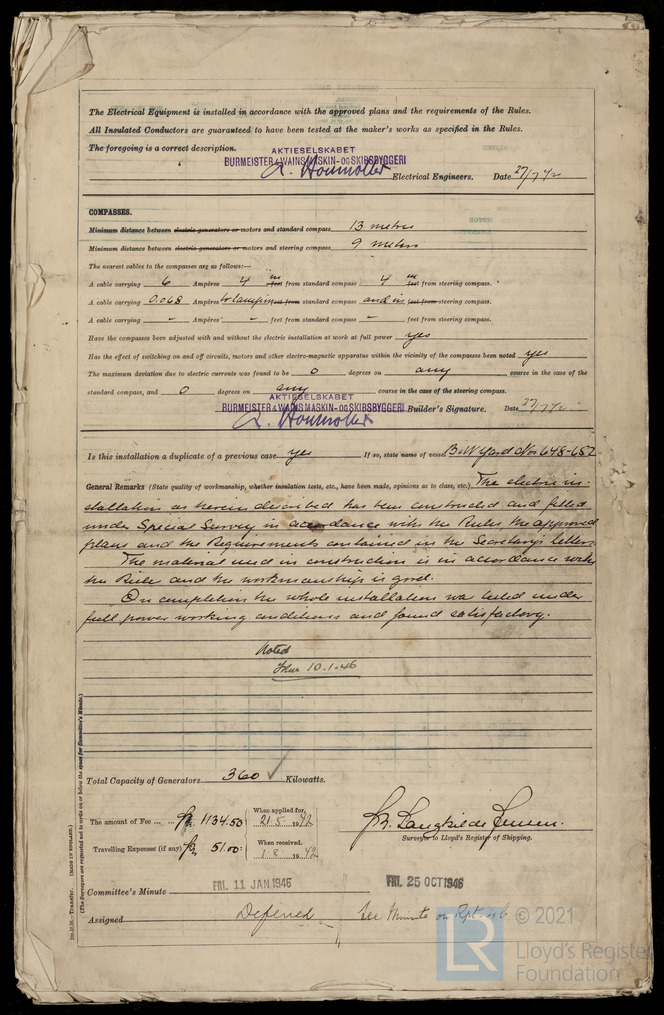 The Electrical Equipment is installed in accordance with the approved plans and the requirements of the Rules.
All Insulated Conductors are guaranteed to have been tested at the maker's works as specified in the Rules.
The foregoing is a correct description.
AKTIESELSKABET
BURMEISTER & WAINS MASKIN- OG SKIBSBYGGERI
Electrical Engineers. Date 27/7/42
COMPASSES.
Minimum distance between electric generators or motors and standard compass 13 metres
Minimum distance between electric generators or motors and steering compass 9 metres
The nearest cables to the compasses are as follows:—
A cable carrying 6 Ampères 4 m feet from standard compass 4 m feet from steering compass.
A cable carrying 0.068 Ampères to lamp in feet from standard compass and in feet from steering compass.
A cable carrying - Ampères - feet from standard compass - feet from steering compass.
Have the compasses been adjusted with and without the electric installation at work at full power yes
Has the effect of switching on and off circuits, motors and other electro-magnetic apparatus within the vicinity of the compasses been noted yes
The maximum deviation due to electric currents was found to be 0 degrees on any course in the case of the
standard compass, and 0 degrees on any course in the case of the steering compass.
AKTIESELSKABET
BURMEISTER & WAINS MASKIN- OG SKIBSBYGGERI Builder's Signature. Date 27/7/42
Is this installation a duplicate of a previous case yes If so, state name of vessel B&W Yard Nos 648-652
General Remarks (State quality of workmanship, whether insulation tests, etc., have been made, opinions as to class, etc.) The electric in-
stallation as herein described has been constructed and fitted
under Special Survey in accordance with the Rules, the approved
plans and the Requirements contained in the Secretary's letters.
The material used in construction is in accordance with
the Rules and the workmanship is good.
On completion the whole installation was tested under
full power working conditions and found satisfactory.
Noted
10.1.46
Total Capacity of Generators 360 Kilowatts.
The amount of Fee ... ... Kr. 1134.50 When applied for, 21.5.1942
Travelling Expenses (if any) Kr. 51.00 When received, 1.8.1942
Surveyor to Lloyd's Register of Shipping.
Committee's Minute FRI. 11 JAN 1946 FRI. 25 OCT 1946
Assigned Deferred See Minute on Rpt
(The Surveyors are requested not to write on or below the space for Committee's Minute.)
Transfer. (MADE IN ENGLAND.)
LR
© 2021
Lloyd's Register
Foundation